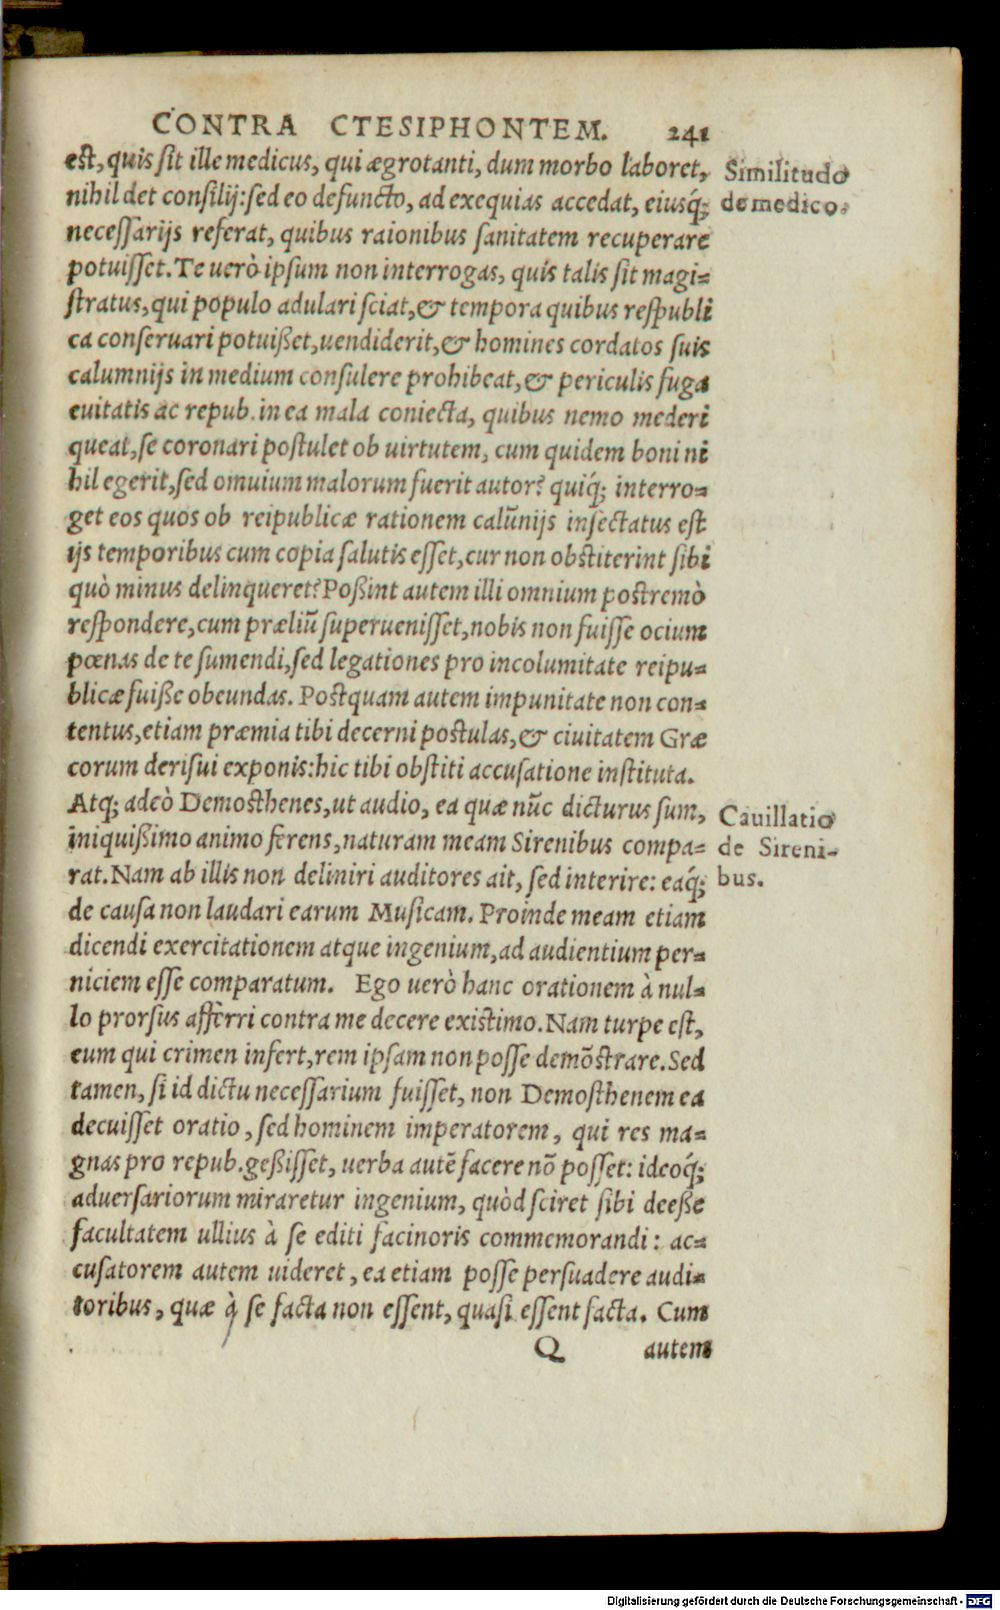 CONTRA CTESIPHONTEM. 241
est, quis sit ille medicus, qui ægrotanti, dum morbo laboret,
Similitudo
nihil det consilij: sed eo defuncto, ad exequias accedat, eiusq́;
de medico.
necessarijs referat, quibus raionibus sanitatem recuperare
potuisset. Te uerò ipsum non interrogas, quis talis sit magi-
stratus, qui populo adulari sciat, & tempora quibus respubli
ca conseruari potuißet, uendiderit, & homines cordatos suis
calumnijs in medium consulere prohibeat, & periculis fuga
euitatis ac repub. in ea mala coniecta, quibus nemo mederi
queat, se coronari postulet ob uirtutem, cum quidem boni ni
hil egerit, sed omuium malorum fuerit autor? quiq́; interro-
get eos quos ob reipublicæ rationem calũnijs insectatus est
ijs temporibus cum copia salutis esset, cur non obstiterint sibi
quò minus delinqueret? Poßint autem illi omnium postremò
respondere, cum præliũ superuenisset, nobis non fuisse ocium
pœnas de te sumendi, sed legationes pro incolumitate reipu-
blicæ fuiße obeundas. Postquam autem impunitate non con-
tentus, etiam præmia tibi decerni postulas, & ciuitatem Græ
corum derisui exponis: hic tibi obstiti accusatione instituta.
Atq; adeò Demosthenes, ut audio, ea quæ nũc dicturus sum,
Cauillatio
iniquißimo animo ferens, naturam meam Sirenibus compa-
de Sireni-
rat. Nam ab illis non deliniri auditores ait, sed interire: eaq́;
bus.
de causa non laudari earum Musicam. Proinde meam etiam
dicendi exercitationem atque ingenium, ad audientium per-
niciem esse comparatum. Ego uerò hanc orationem à nul-
lo prorsus afferri contra me decere existimo. Nam turpe est,
eum qui crimen infert, rem ipsam non posse demõstrare. Sed
tamen, si id dictu necessarium fuisset, non Demosthenem ea
decuisset oratio, sed hominem imperatorem, qui res ma-
gnas pro repub. geßisset, uerba autẽ facere nõ posset: ideoq́;
aduersariorum miraretur ingenium, quòd sciret sibi deeße
facultatem ullius à se editi facinoris commemorandi: ac-
cusatorem autem uideret, ea etiam posse persuadere audi-
toribus, quæ à se facta non essent, quasi essent facta. Cum
Q autem
Digitalisierung gefördert durch die Deutsche Forschungsgemeinschaft - DFG